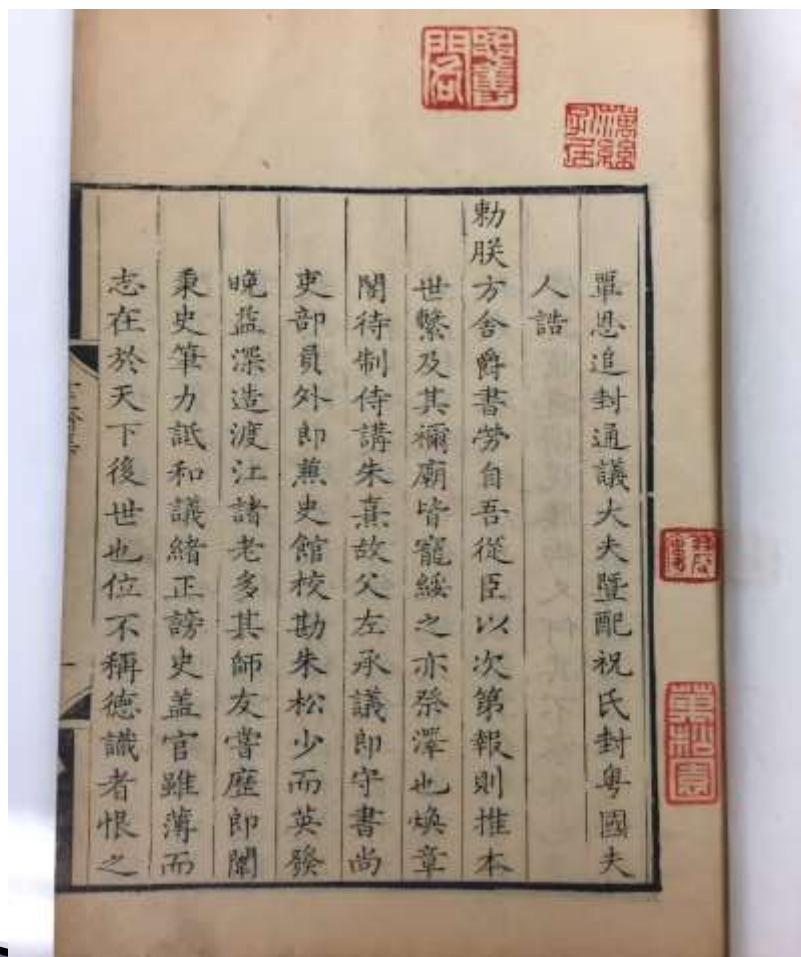 覃恩追封通議大夫暨配祝氏封粵國夫
人誥
勅朕方舍爵書勞自吾從臣以次第報則推本
世繫及其禰廟皆寵綏之亦祭澤也煥章
閣待制侍講朱熹故父左承議郎守尚書
吏部員外郎兼史館校勘朱松少而英發
晚益深造渡江諸老多其師友嘗歷郎闈
秉史筆力詆和議緒正謗史蓋官雖薄而
志在於天下後世也位不稱德識者恨之